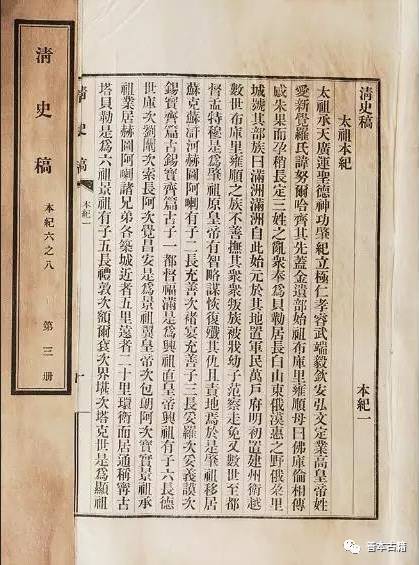 本紀一
清史稿
太祖本紀
太祖承天廣運聖德神功肇紀立極仁孝睿武端毅欽安弘文定業高皇帝姓
愛新覺羅氏諱努爾哈齊其先蓋金遺部始祖布庫里雍順母曰佛庫倫相傳
感朱果而孕稍長定三姓之亂衆奉爲貝勒居長白山東俄漠惠之野俄朵里
城號其部族曰滿洲滿洲自此始元於其地置軍民萬戶府明初置建州衛越
數世布庫里雍順之族不善撫其衆衆叛族被戕幼子范察走免又數世至都
督孟特穆是爲肇祖原皇帝有智略謀恢復殲其仇且責地焉於是肇祖移居
蘇克蘇滸河赫圖阿喇有子二長充善次褚宴充善子三長妥羅次妥義謨次
錫寶齊篇古錫寶齊篇古子一都督福滿是爲興祖直皇帝興祖有子六長德
世庫次劉闡次索長阿次覺昌安是爲景祖翼皇帝次包朗阿次寶實景祖承
祖業居赫圖阿喇諸兄弟各築城近者五里遠者二十里環衛而居通稱寧古
塔貝勒是爲六祖景祖有子五長禮敦次額爾袞次界堪次塔克世是爲顯祖
清史稿 本紀一 一
清史稿 本紀六之八 第三册
善本古籍